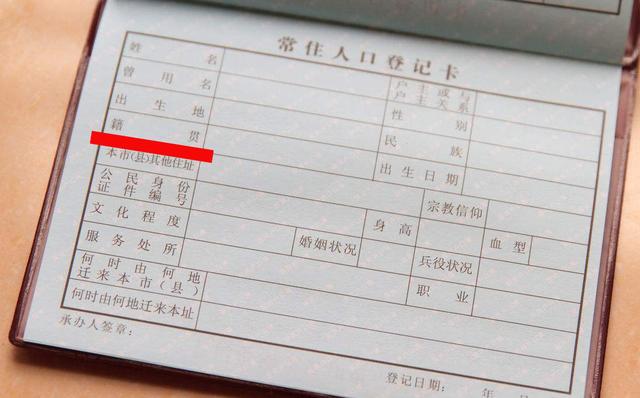 常住人口登记卡
姓名 户主或与户主关系
曾用名 性别
出生地 民族
籍贯 出生日期
本市(县)其他住址 宗教信仰
公民身份证件编号 身高 血型
文化程度 婚姻状况 兵役状况
服务处所 职业
何时由何地迁来本市(县)
何时由何地迁来本址
承办人签章: 登记日期: 年 月